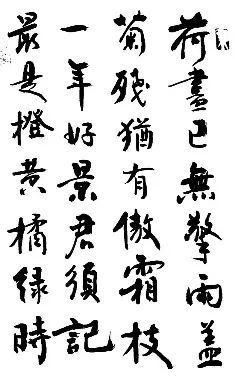 荷盡已無擎雨蓋
菊殘猶有傲霜枝
一年好景君須記
最是橙黃橘綠時